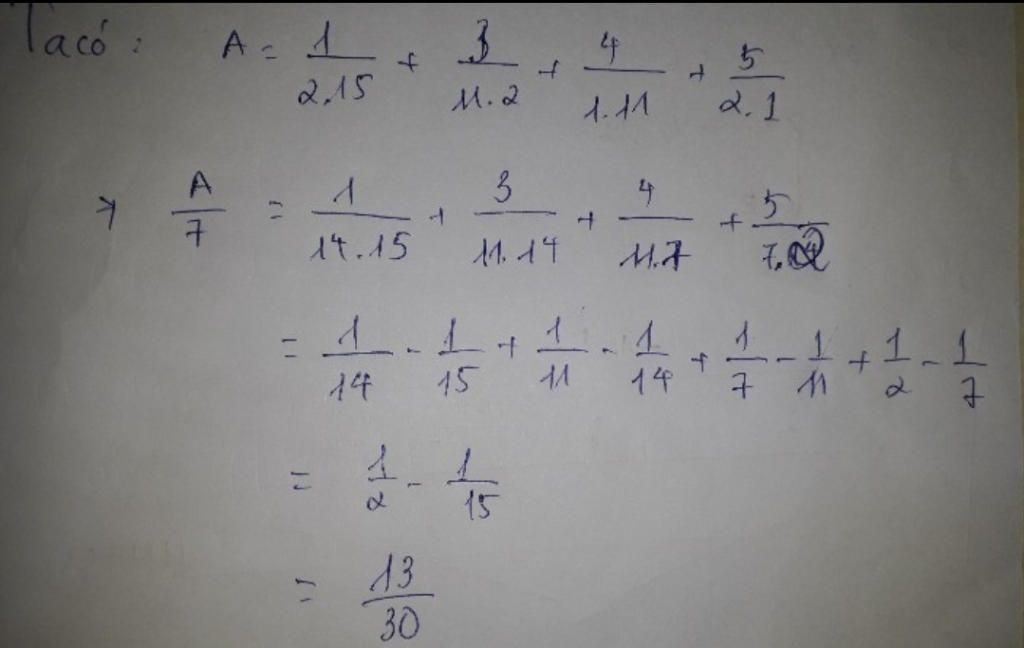 Ta có : A = 1/2.15 + 3/11.2 + 4/1.11 + 5/2.1
→ A/7 = 1/14.15 + 3/11.14 + 4/11.7 + 5/7.2
= 1/14 - 1/15 + 1/11 - 1/14 + 1/7 - 1/11 + 1/2 - 1/7
= 1/2 - 1/15
= 13/30